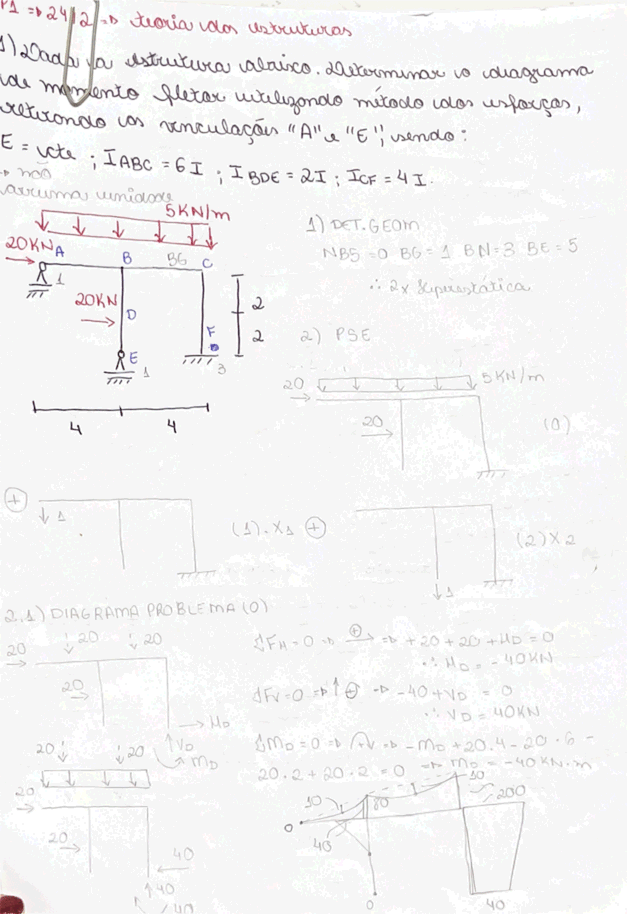 P1 => 24/2 => teoria das estruturas
1) Dada a estrutura abaixo. Determinar o diagrama
de momento fletor utilizando método dos esforços,
retirando as vinculações "A" e "E", sendo:
E = vcte ; I ABC = 6I ; I BDE = 2I ; I CF = 4I.
→ não
arruma unidade
5KN/m
20KN A
B
BG
C
1
20KN
D
F
2
2
E
1
3
4
4
1) DET. GEOM
NBS = 0 BG = 1 BN = 3 BE = 5
∴ 2x hiperestática
2) PSE
20
5KN/m
20
(0)
+
1
(1).X1
+
1
(2)X2
2.1) DIAGRAMA PROBLEMA (0)
20
20
20
20
HD
VD
MD
ΣFH = 0 => + => +20 + 20 + HD = 0
∴ HD = -40KN
ΣFV = 0 => ↑ + => -40 + VD = 0
∴ VD = 40KN
ΣMD = 0 => => -MD + 20.4 - 20.6 -
20.2 + 20.2 = 0 => MD = -40KN.m
20
20
20
20
40
40
40
0
10
80
40
10
200
0
40